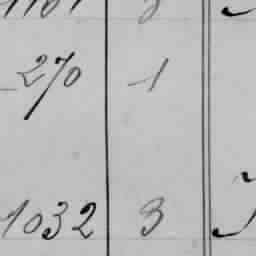 270 1
1032 3